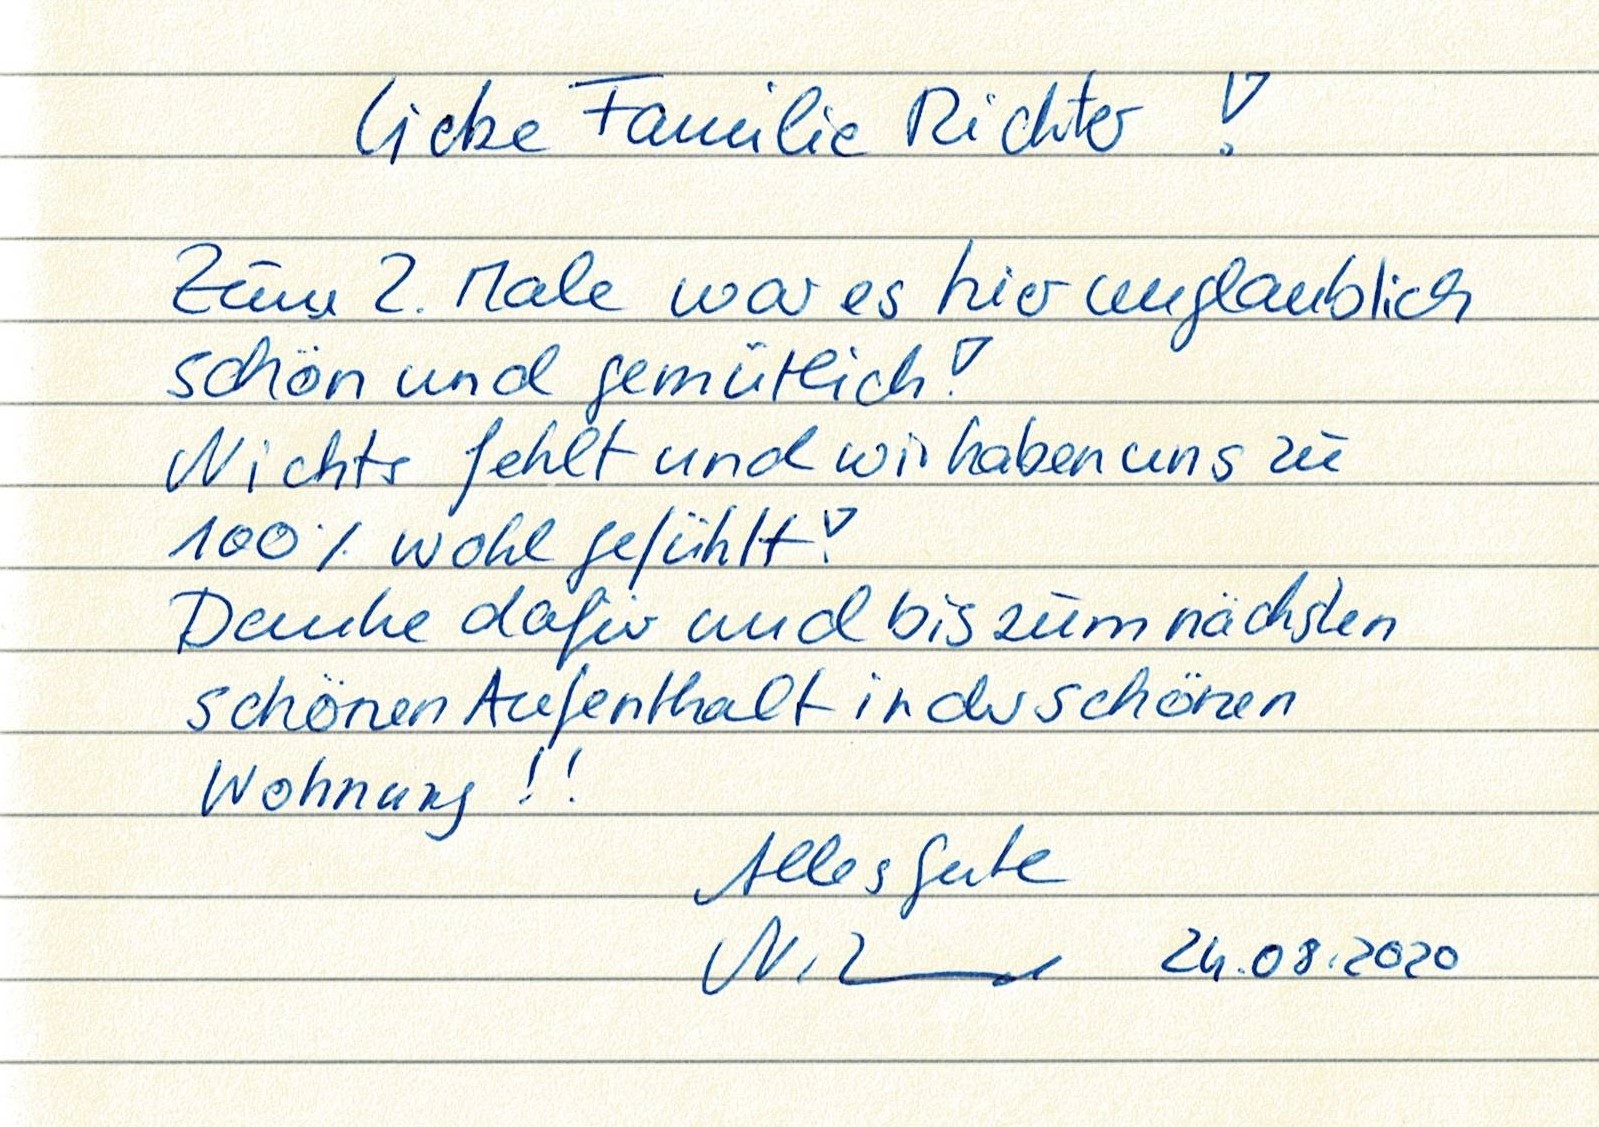 Liebe Familie Richter !
Zum 2. Male war es hier unglaublich
schön und gemütlich!
Nichts fehlt und wir haben uns zu
100% wohl gefühlt!
Danke dafür und bis zum nächsten
schönen Aufenthalt in der schönen
Wohnung !!
Alles Gute
24.08.2020